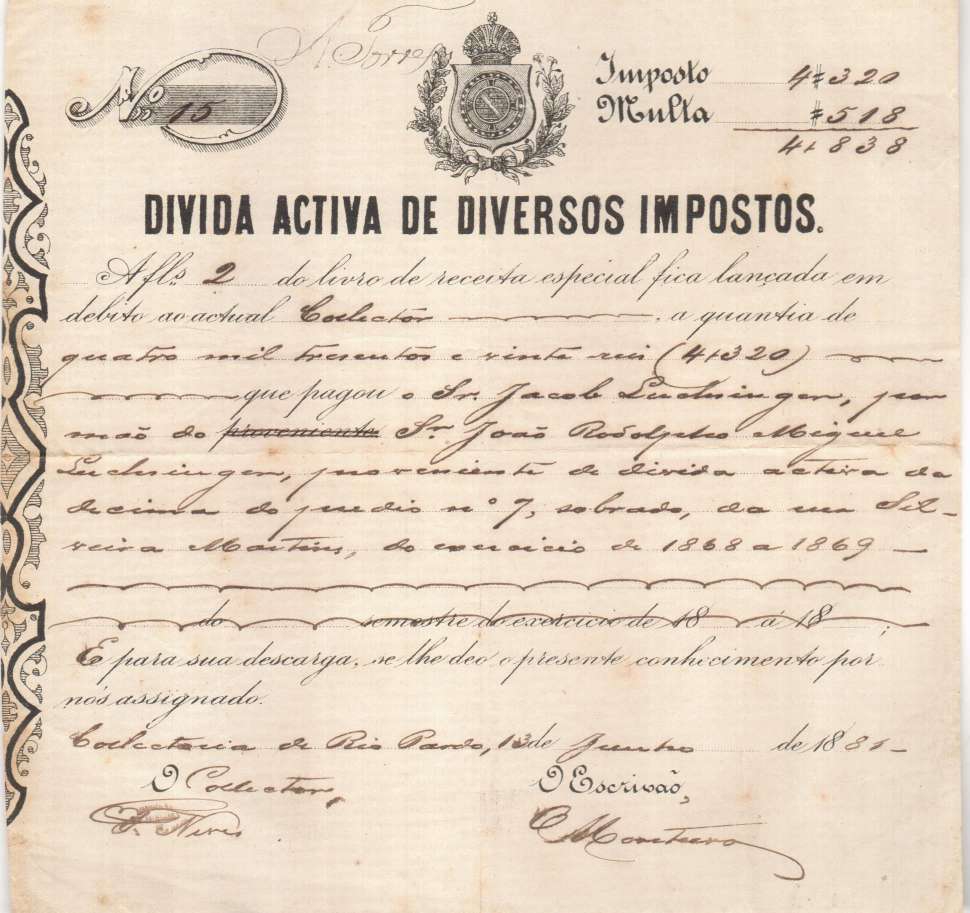 A. Torres
No 15
Imposto 4$320
Multa $518
4$838
DIVIDA ACTIVA DE DIVERSOS IMPOSTOS.
A fls. 2 do livro de receita especial fica lançada em
debito ao actual Collector, a quantia de
quatro mil tresentos e vinte reis (4$320)
que pagou o Sr. Jacob Luchsinger, por
mão do proveniente Sr. João Rodolpho Miguel
Luchsinger, proveniente de divida activa da
decima do predio nº 7, sobrado, da rua Sil-
veira Martins, do exercicio de 1868 a 1869
do semestre do exercicio de 18 á 18 ;
E para sua descarga, se lhe deo o presente conhecimento por
nós assignado.
Collectoria de Rio Pardo, 13 de Junho de 1881
O Collector, O Escrivão,
Neves Monteiro